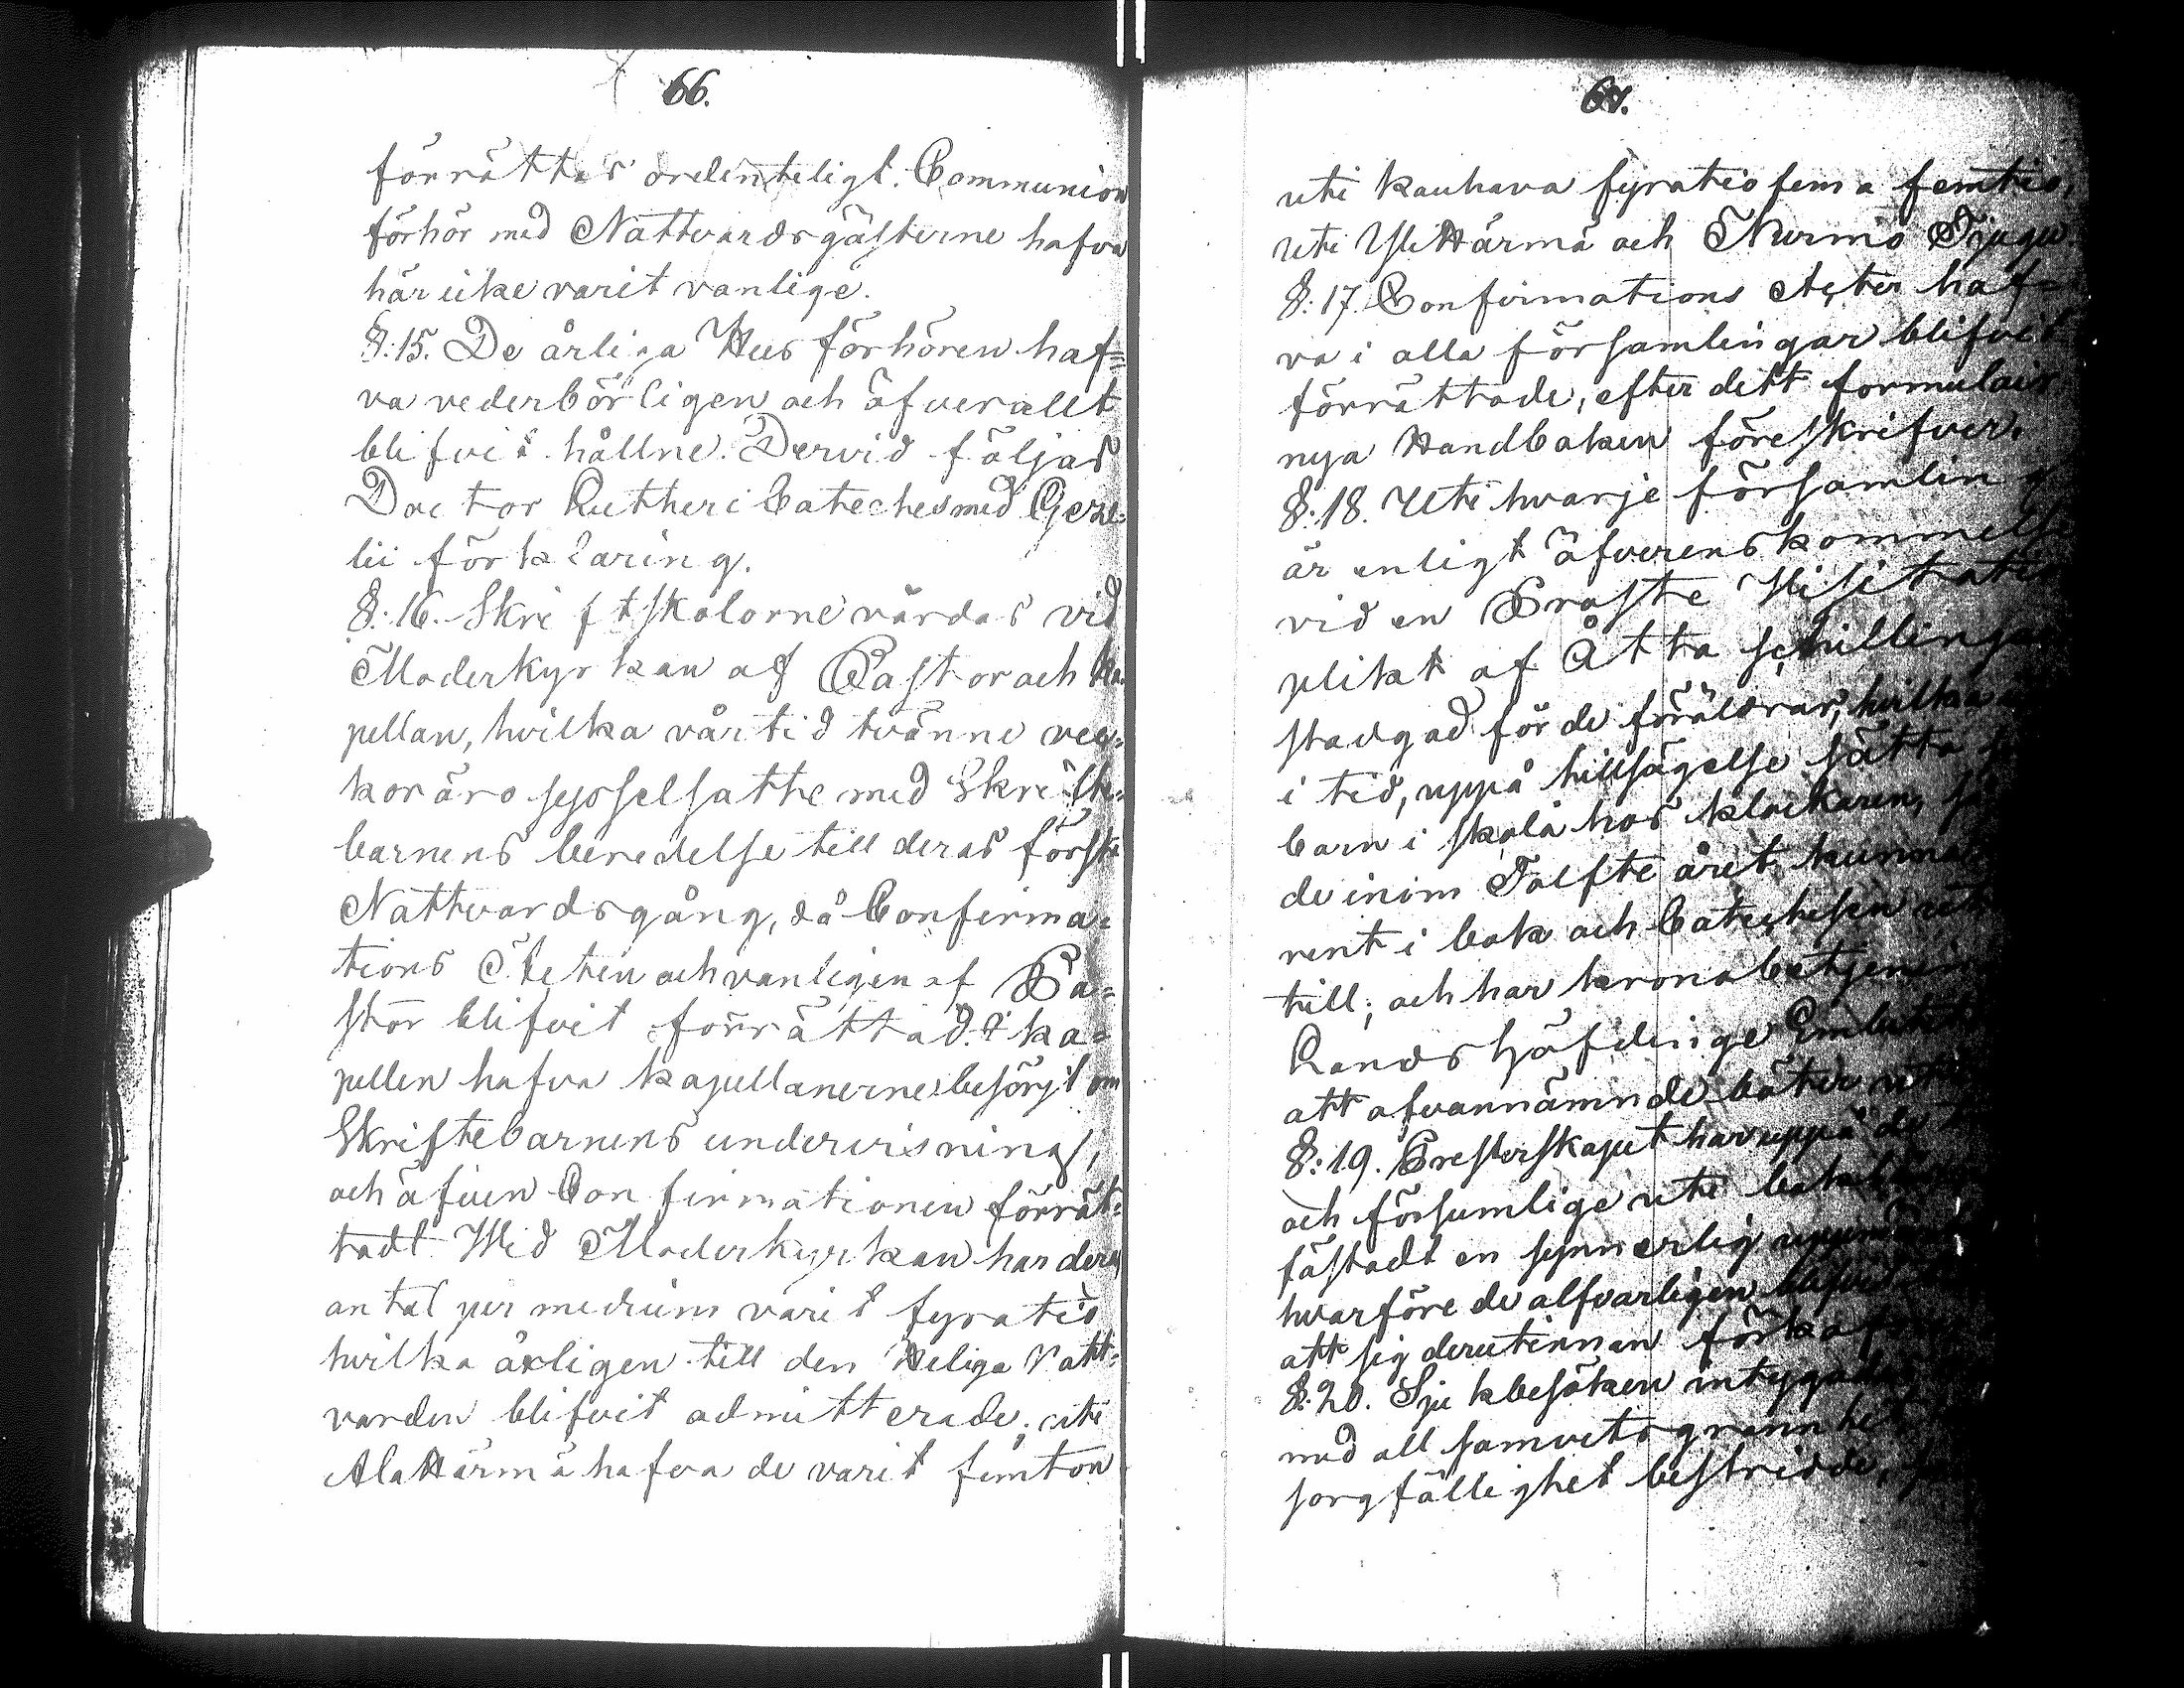 66.
förrättas ordenteligt. Communion
förhör med Nattvardsgästerne hafva
här icke varit vanlige.
§: 15. De årliga Hus förhören haf=
va vederbörligen och öfverallt
blifvit hållne. Dervid följas
Doctor Lutheri Cateches med Geze=
lii förklaring.
§: 16. Skriftskolorne vårdas vid
Moderkyrkan af Pastor och Ka
pellan, hvilka vårtid tvänne vec=
kor äro sysselsatte med Skrifte=
barnens beredelse till deras förste
Nattvardsgång, då Confirma=
tions Acten och vanligen af Pa=
stor blifvit förrättad. I ka=
pellen hafva kapellanerne besörjt om
Skriftebarnens undervisning,
och äfven Confirmationen förrät=
tadt. Wid Moderkyrkan har deras
antal per medium varit fyratio
hvilka årligen till den Heliga Natt=
varden blifvit admitterade; uti
Ala Härmä hafva de varit femton
67.
uti Kauhava fyratio fem a femtio,
uti Yli Härmä och Nurmo Tjugu
§: 17. Confirmations Acter haf=
va i alla församlingar blifvit
förrättade, efter dett formulair
nya Handboken föreskrifver.
§: 18. Uti hvarje församling
är enligt öfverenskommelse
vid en Proste Visitation
plikt af Åtta schillingar
stadgad för de föräldrar, hvilka
i tid, uppå tillsägelse sätta
barn i skola hos klockaren,
de inim Tolfte året kunna
rent i bok och Catechesen
till; och har kronobetjening
Landshöfdinge Embetet
att ofvannämnde böter
§: 19. Presterskapet har uppå de
och försumlige uti
fästadt en synnerlig
hvarföre de alfvarligen blifvit
att sig derutinnan förkofra
§: 20. Sjukbesöken intygades
med all samvetsgrannhet
sorgfällighet bestridde,